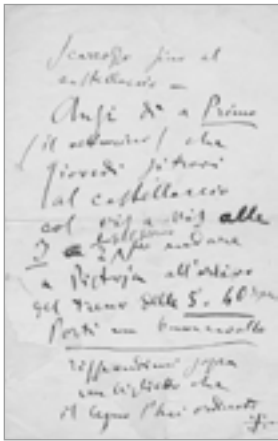 Scarozzo fino al
castellaccio –
Anzi di a Primo
(il settimino) che
giovedì si trovi
al castellaccio
col vis a vis alle
3 e andare
a Pistoja all'arrivo
del treno delle 5.40
Porti un buon cavallo
rispondimi sopra
un biglietto che
il legno l'hai ordinato